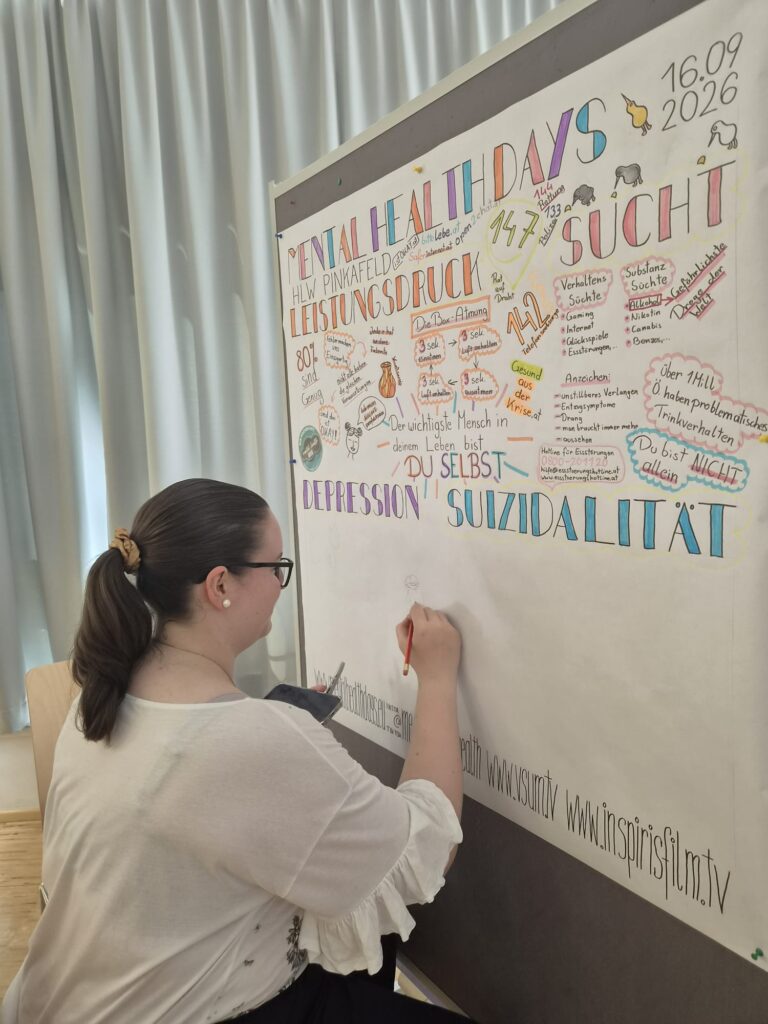 16.09
2026
MENTAL HEALTH DAYS
HLW PINKAFELD
bitteLebe.at
open2chat.at
Saferinternet.at
147
144
Rettung
133
Polizei
SUCHT
LEISTUNGSDRUCK
Rat
auf
Draht
142
Telefonseelsorge
Die Box-Atmung
3 sek.
einatmen
3 sek.
Luft anhalten
3 sek.
Luft anhalten
3 sek.
ausatmen
80%
sind
Genug
Gesund
aus
der
Krise.at
Der wichtigste Mensch in
deinem Leben bist
DU SELBST
Verhaltens
Süchte
• Gaming
• Internet
• Glücksspiele
• Essstörungen,...
Substanz
Süchte
• Alkohol
• Nikotin
• Canabis
• Benzos,...
Gefährlichste
Droge der
Welt
Anzeichen:
- unstillbares Verlangen
- Entzugsymptome
- Drang
- man braucht immer mehr
- aussehen
Über 1 Mill
Ö. haben problematisches
Trinkverhalten
Hotline für Essstörungen
0800-201120
hilfe@essstoerungshotline.at
www.essstoerungshotline.at
Du bist NICHT
allein
DEPRESSION
SUIZIDALITÄT
www.vsum.tv
www.inspirisfilm.tv